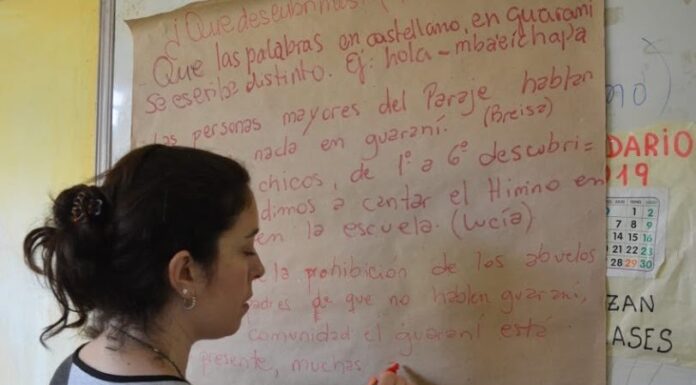 ¿Que descubrimos?
Que las palabras en castellano, en guarani
se escriba distinto. Ej: hola - mbaeichapa
las personas mayores del Paraje hablan
nada en guaraní. (Breisa)
chicos, de 1° a 6° descubri=
dimos a cantar el Himno en
en la escuela. (Lucía)
la prohibicion de los abuelos
padres de que no hablen guaraní,
comunidad el guaraní está
presente, muchas
DARIO
19
1 2
8 9
14 15 16
21 22 23
28 29 30
ZAN
ASES